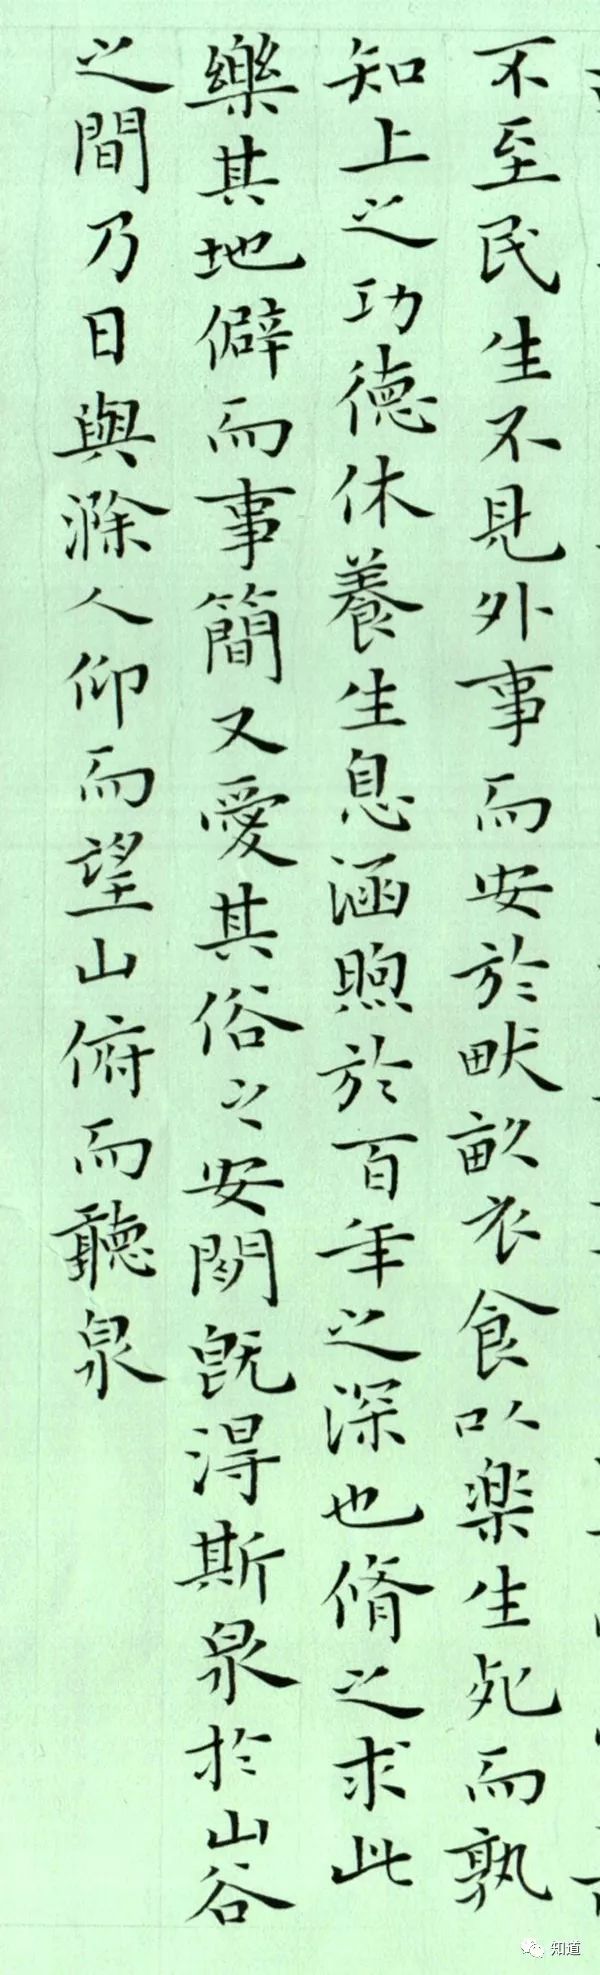 不至民生不見外事而安於畎畝衣食以樂生死而孰
知上之功德休養生息涵煦於百年之深也脩之来此
樂其地僻而事簡又愛其俗之安閒既得斯泉於山谷
之間乃日與滁人仰而望山俯而聽泉
知道